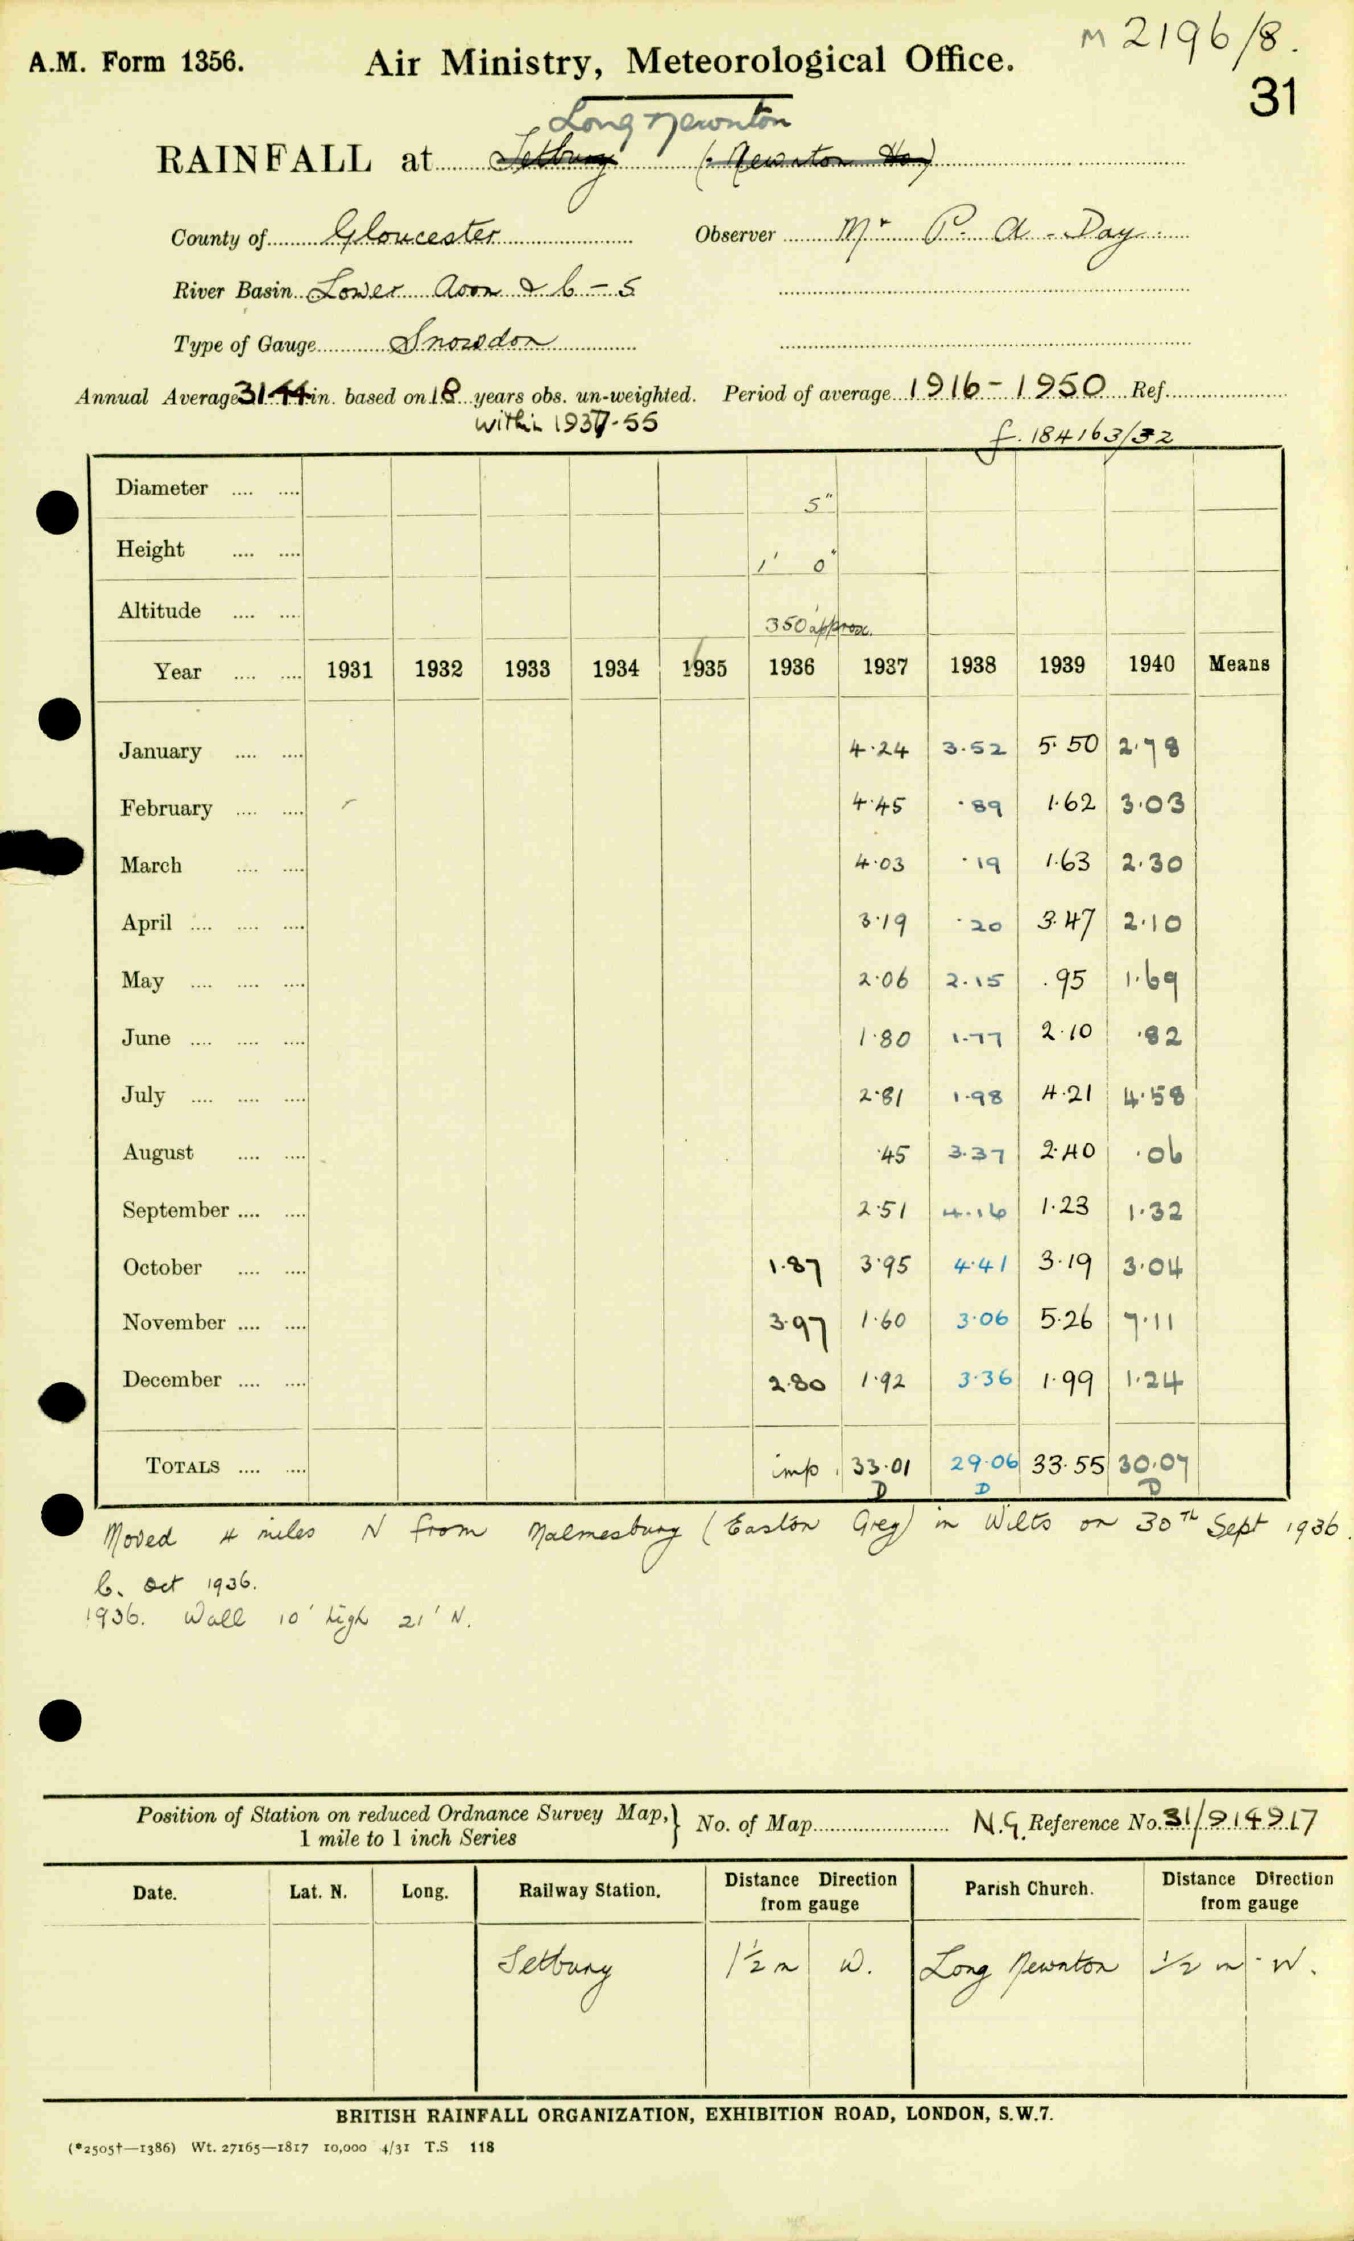 M 2196/8.
A.M. Form 1356. Air Ministry, Meteorological Office.
31
Long Newnton
RAINFALL at Tetbury (Newnton Ho)
County of Gloucester Observer Mr P. A. Day.
River Basin Lower Avon & 6-5
Type of Gauge Snowdon
Annual Average 31.44 in. based on 18 years obs. un-weighted. Period of average 1916-1950 Ref.
within 1937-55
f. 184163/32
Diameter .... .... 5"
Height .... .... 1' 0"
Altitude .... .... 350' approx.
Year .... .... 1931 1932 1933 1934 1935 1936 1937 1938 1939 1940 Means
January .... .... 4.24 3.52 5.50 2.78
February .... .... 4.45 .89 1.62 3.03
March .... .... 4.03 .19 1.63 2.30
April .... .... .... 3.19 .20 3.47 2.10
May .... .... .... 2.06 2.15 .95 1.69
June .... .... .... 1.80 1.77 2.10 .82
July .... .... .... 2.81 1.98 4.21 4.58
August .... .... .45 3.37 2.40 .06
September .... .... 2.51 4.16 1.23 1.32
October .... .... 1.87 3.95 4.41 3.19 3.04
November .... .... 3.97 1.60 3.06 5.26 7.11
December .... .... 2.80 1.92 3.36 1.99 1.24
TOTALS .... .... imp. 33.01 29.06 33.55 30.07
D D D
Moved 4 miles N from Malmesbury (Easton Grey) in Wilts on 30TH Sept 1936.
C. Oct 1936.
1936. Wall 10' high 21' N.
Position of Station on reduced Ordnance Survey Map, 1 mile to 1 inch Series } No. of Map N.G. Reference No. 31/914917
Date. Lat. N. Long. Railway Station. Distance Direction from gauge Parish Church. Distance Direction from gauge
Tetbury 1½ m W. Long Newnton ½ m W.
BRITISH RAINFALL ORGANIZATION, EXHIBITION ROAD, LONDON, S.W.7.
(*2505†—1386) Wt. 27165—1817 10,000 4/31 T.S 118